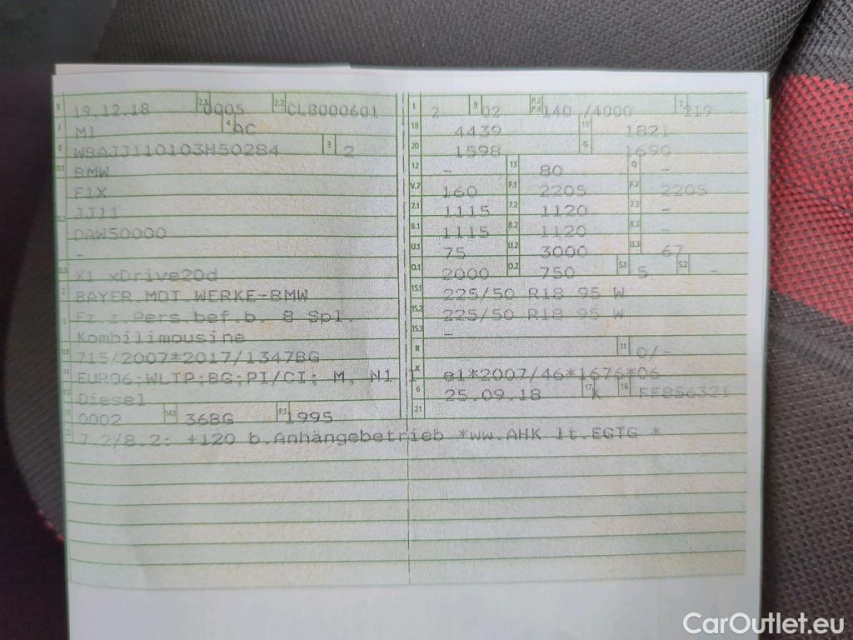 B 19.12.18 2.1 0005 2.2 CLB000601
J M1 4 AC
E WBAJJ110103H50284 3 2
D.1 BMW
F1X
JJ11
D.2 DAW50000
-
D.3 X1 xDrive20d
2 BAYER.MOT.WERKE-BMW
5 Fz.z.Pers.bef.b. 8 Spl.
Kombilimousine
V.9 715/2007*2017/1347BG
14 EURO6;WLTP;BG;PI/CI; M, N1 I
P.3 Diesel
10 0002 14.1 36BG P.1 1995
L 2 9 02 P.2 P.4 140 /4000 T 219
18 4439 19 1821
20 1598 G 1690
12 - 13 80 Q -
V.7 160 F.1 2205 F.2 2205
7.1 1115 7.2 1120 7.3 -
8.1 1115 8.2 1120 8.3 -
U.1 75 U.2 3000 U.3 67
O.1 2000 O.2 750 S.1 5 S.2 -
15.1 225/50 R18 95 W
15.2 225/50 R18 95 W
15.3 -
R 11 0/-
K e1*2007/46*1676*06
6 25.09.18 17 K 16 FF856321
21
7.2/8.2: +120 b.Anhängebetrieb *ww.AHK lt.EGTG *
CarOutlet.eu